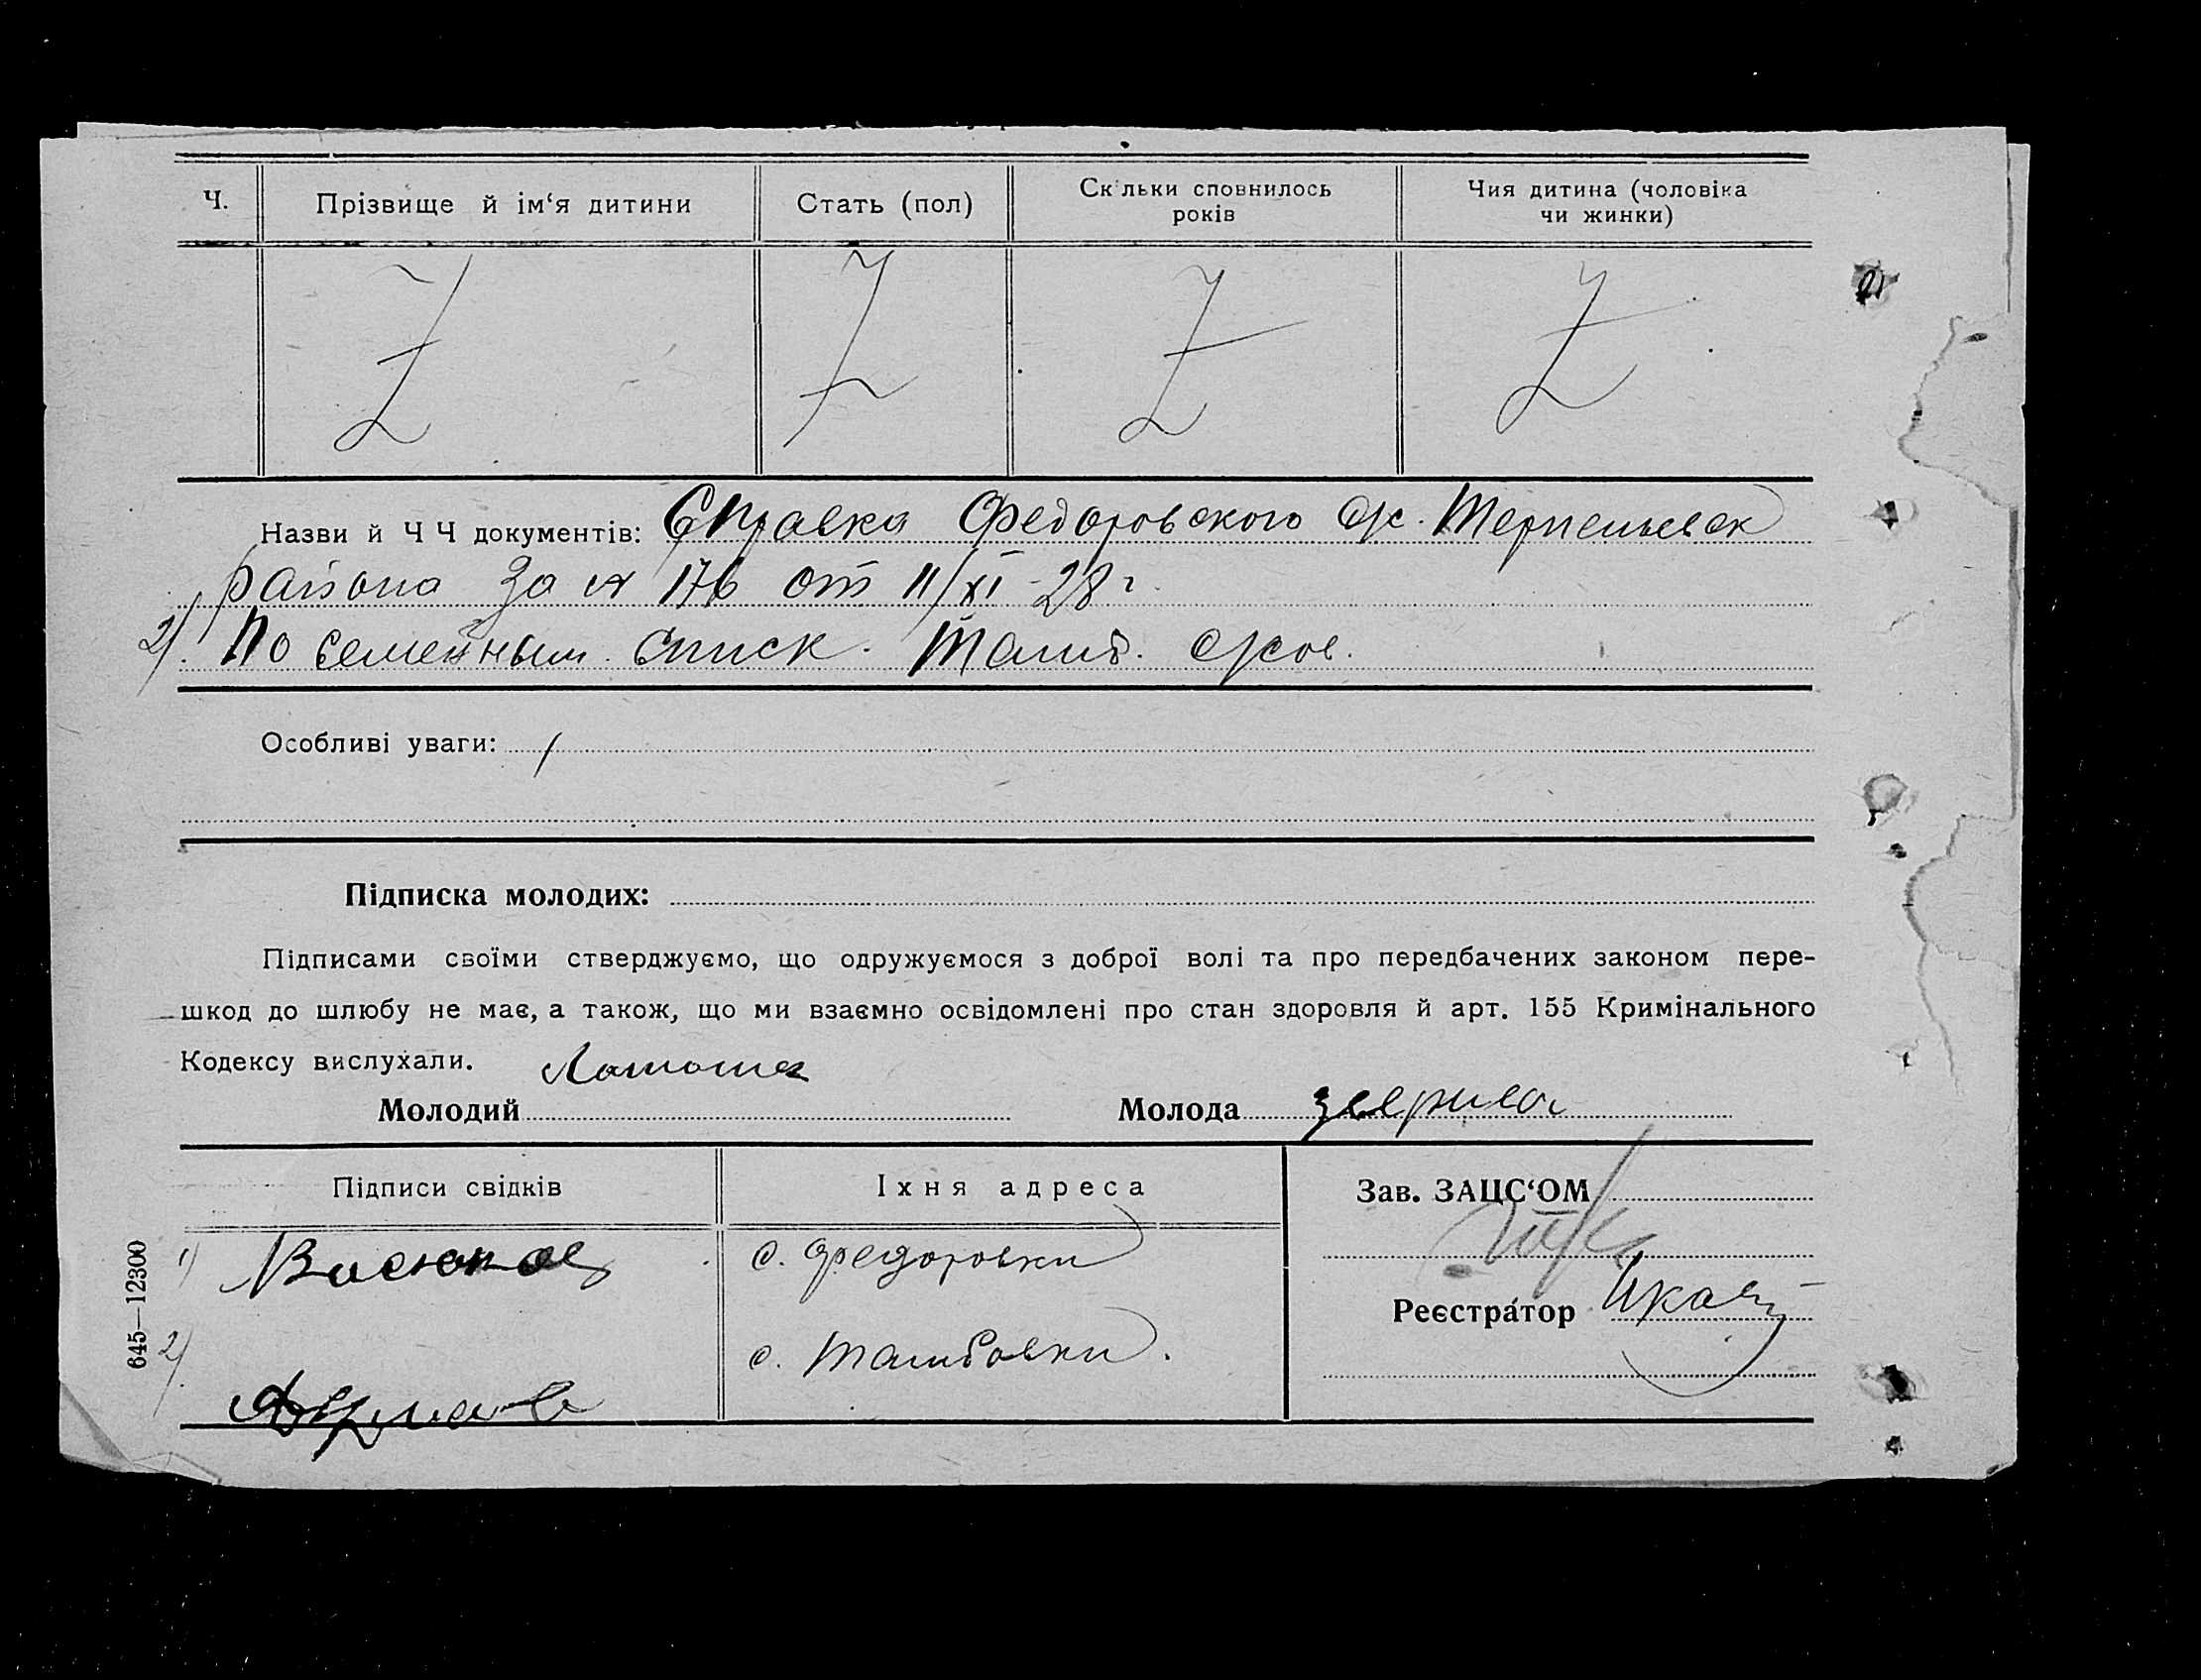 Ч. Прізвище й ім‘я дитини Стать (пол) Скільки сповнилось років Чия дитина (чоловіка чи жинки)
Назви й Ч Ч документів: Справка Федоровского с/с. Терпеньевск
района за № 176 от 11/XI-28 г.
2/. По семейным списк. Тамб.
Особливі уваги:
Підписка молодих:
Підписами своїми стверджуємо, що одружуємося з доброї волі та про передбачених законом пере-
шкод до шлюбу не має, а також, що ми взаємно освідомлені про стан здоровля й арт. 155 Кримінального
Кодексу вислухали.
Молодий Молода
Підписи свідків Їхня адреса Зав. ЗАЦС‘ОМ
1) с. Федоровки
Реєстра́тор
2/. с. Тамбовки.
645—12300